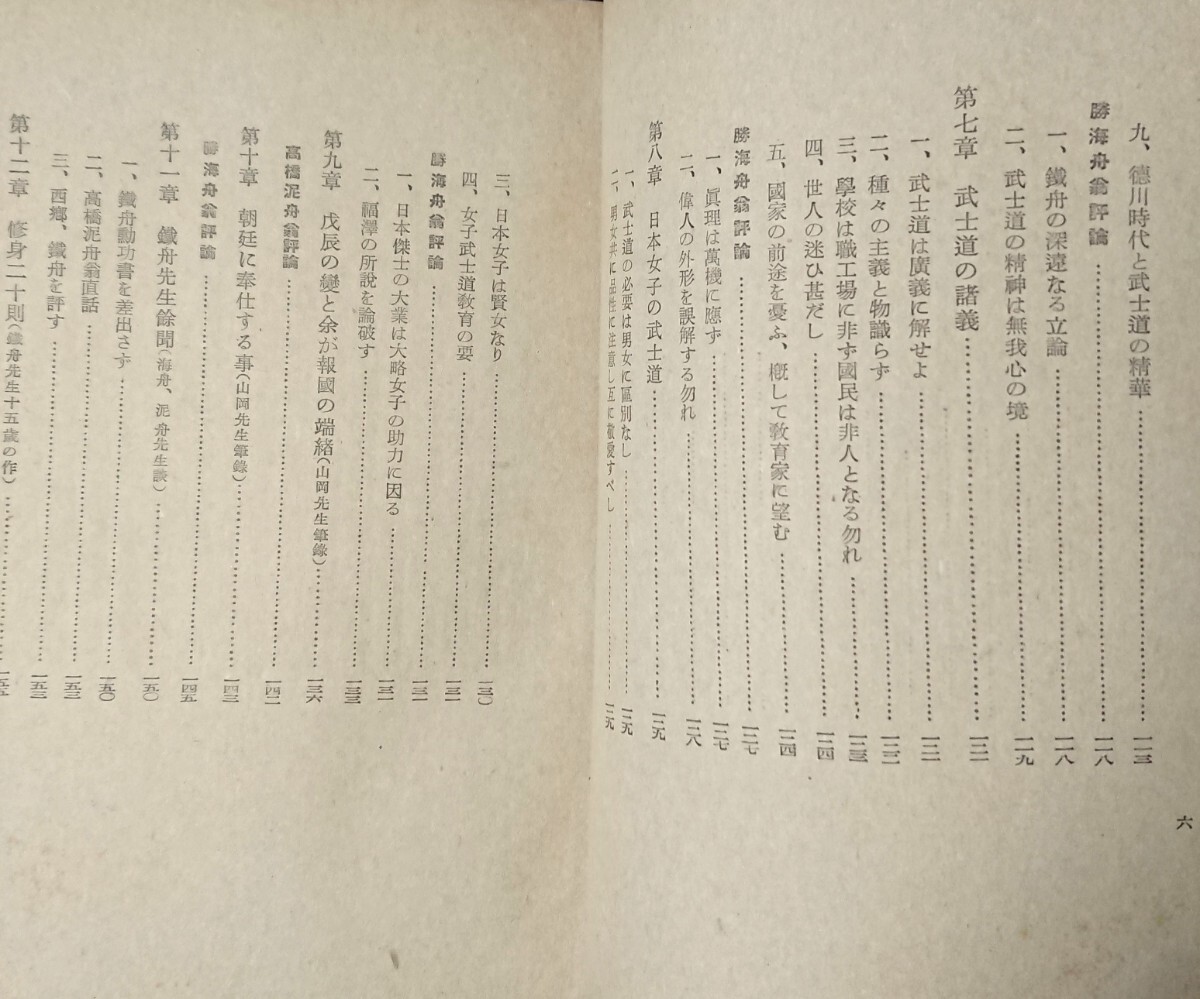 九、德川時代と武士道の精華…………一一三
勝海舟翁評論…………一一八
一、鐵舟の深遠なる立論…………一一八
二、武士道の精神は無我心の境…………一一九
第七章 武士道の諸義…………一二一
一、武士道は廣義に解せよ…………一二一
二、種々の主義と物識らず…………一二二
三、學校は職工場に非ず國民は非人となる勿れ…………一二三
四、世人の迷ひ甚だし…………一二四
五、國家の前途を憂ふ、槪して敎育家に望む…………一二四
勝海舟翁評論…………一二七
一、眞理は萬機に應ず…………一二七
二、偉人の外形を誤解する勿れ…………一二八
第八章 日本女子の武士道…………一二九
一、武士道の必要は男女に區別なし…………一二九
二、男女共に品性に注意し互に敬愛すべし…………一二九
六
三、日本女子は賢女なり…………一三〇
四、女子武士道敎育の要…………一三一
勝海舟翁評論…………一三一
一、日本傑士の大業は大略女子の助力に因る…………一三一
二、福澤の所說を論破す…………一三三
第九章 戊辰の變と余が報國の端緒(山岡先生筆錄)…………一三六
高橋泥舟翁評論…………一四二
第十章 朝廷に奉仕する事(山岡先生筆錄)…………一四三
勝海舟翁評論…………一四五
第十一章 鐵舟先生餘聞(海舟、泥舟先生談)…………一五〇
一、鐵舟勳功書を差出さず…………一五〇
二、高橋泥舟翁直話…………一五二
三、西鄕、鐵舟を評す…………一五三
第十二章 修身二十則(鐵舟先生十五歲の作)…………一五五